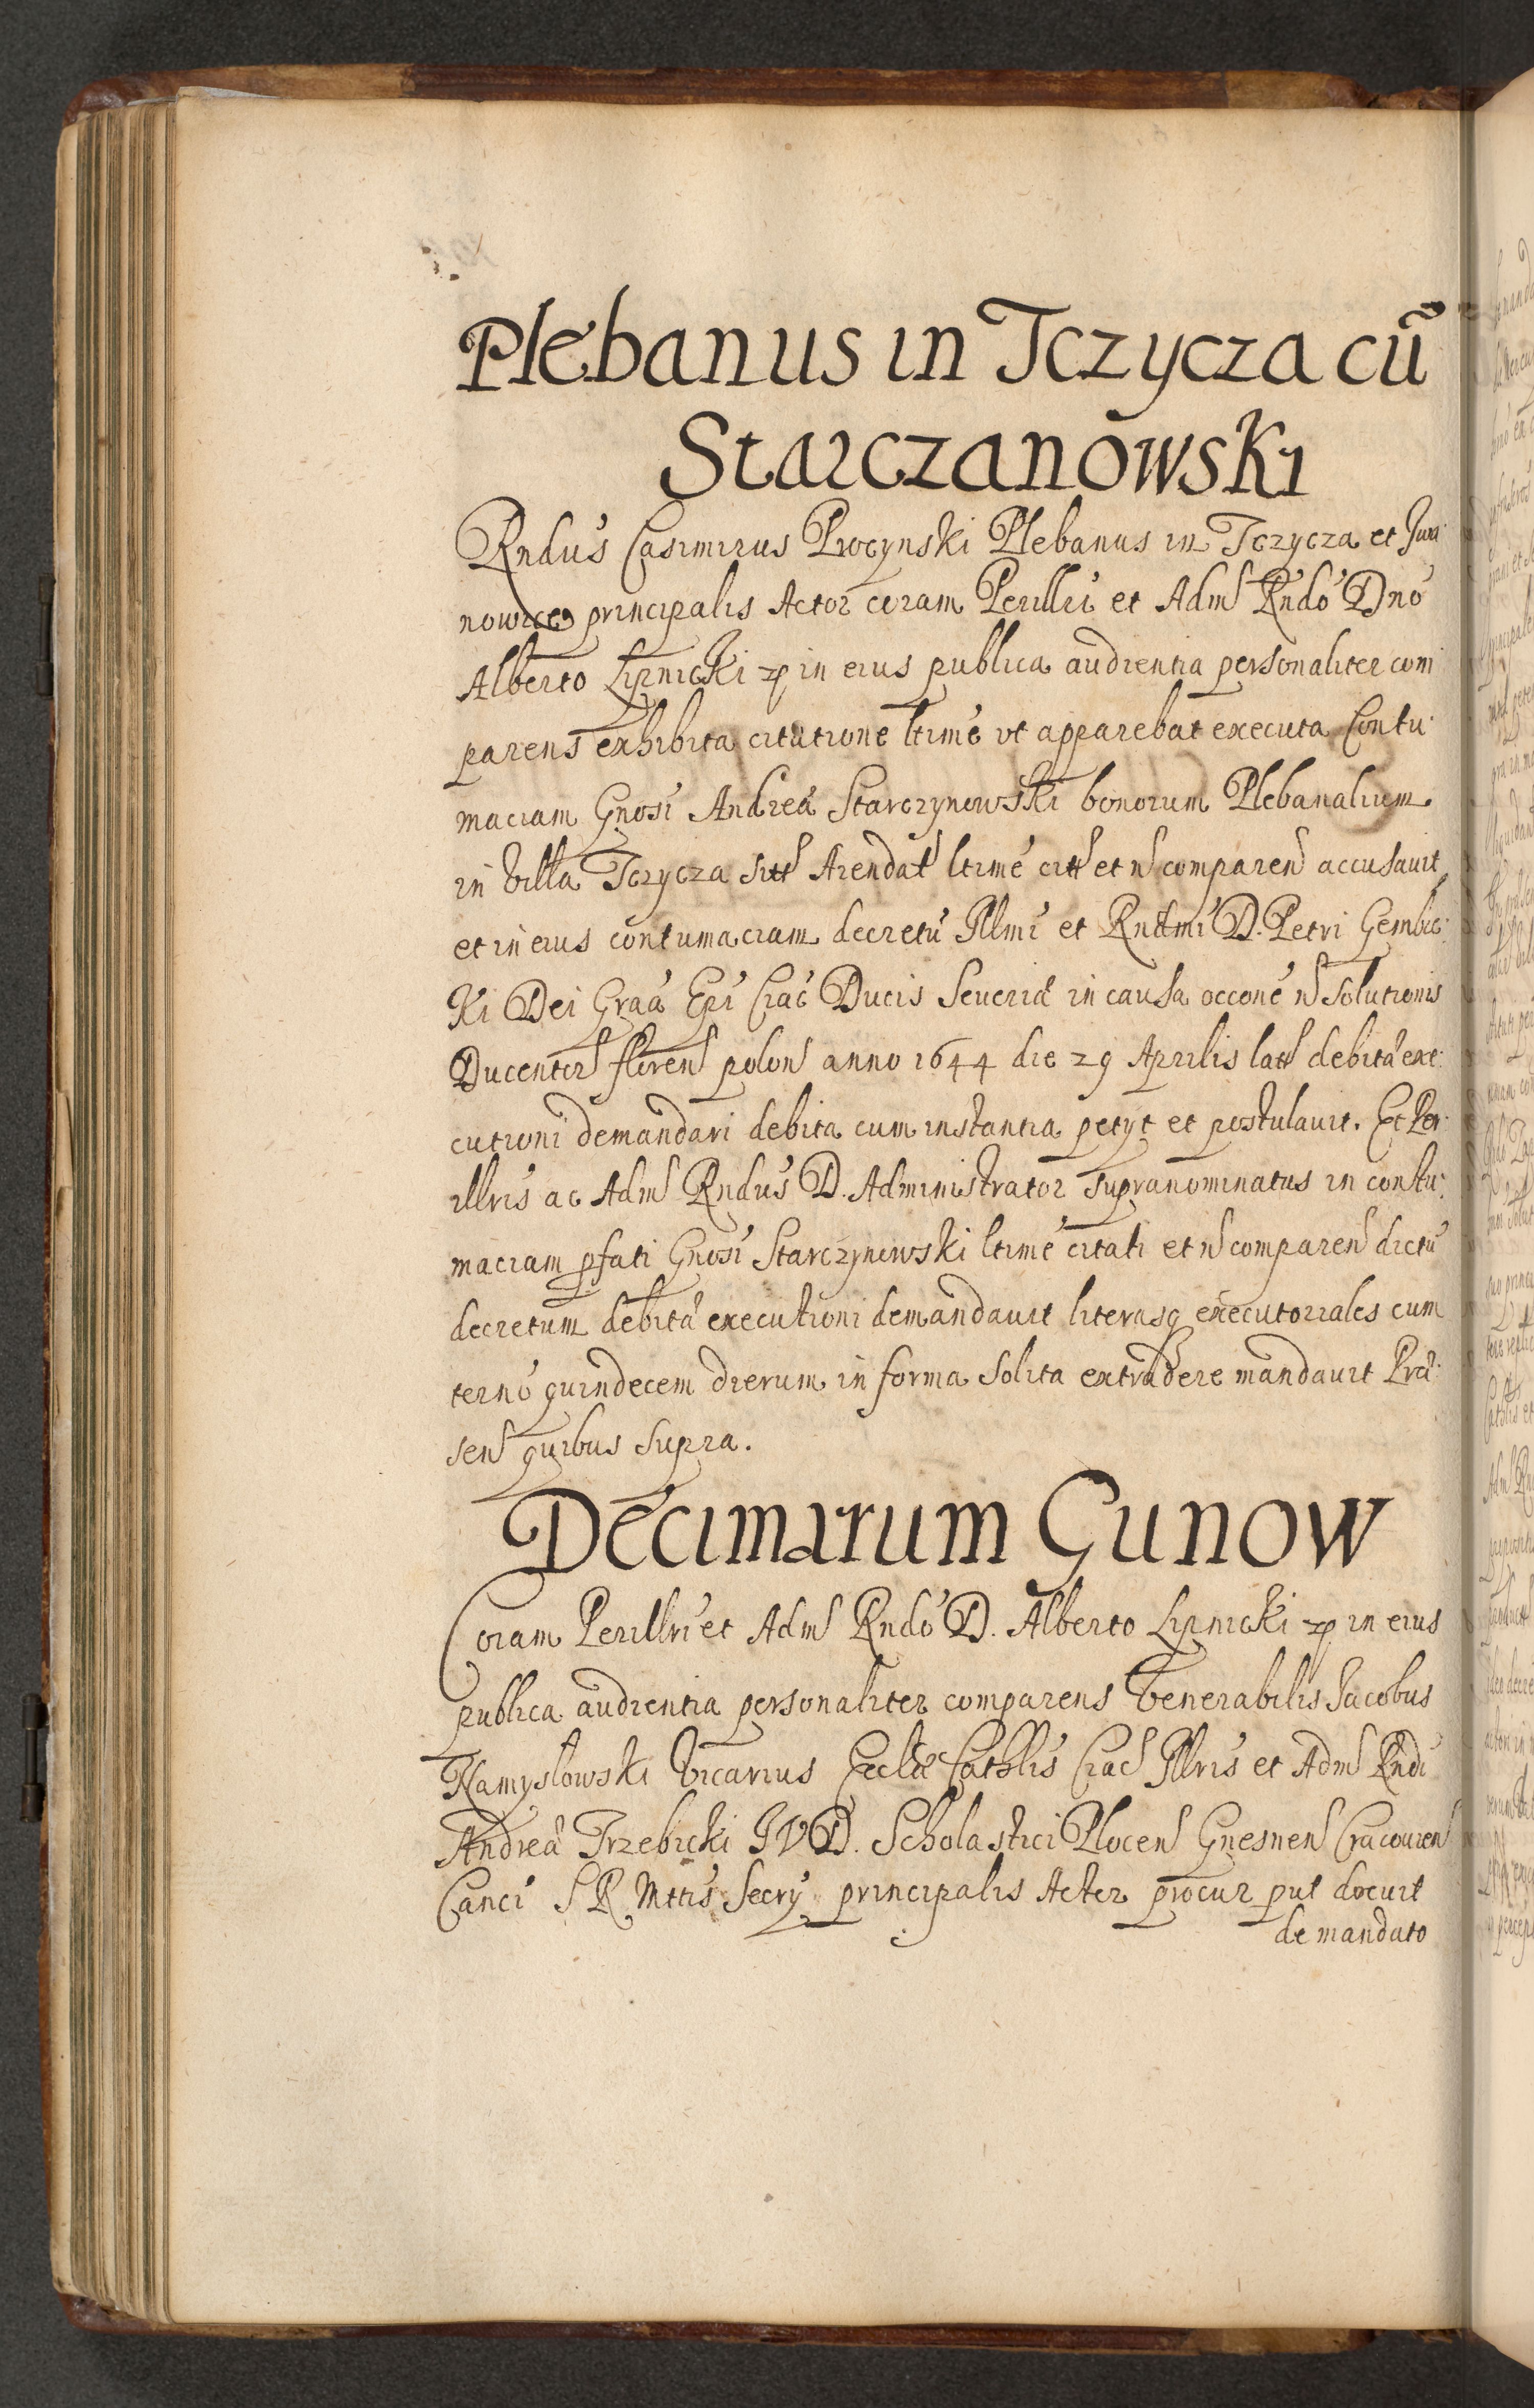 Plebanus in Tczycza cū
Starczanowski
Rndus Casimirus Procynski Plebanus in Tczycza et
principalis Actor coram Perillri et Adm Rndo Dno
Alberto Lipnicki in eius publica audientia personaliter com
parens exhibita citatione ltime vt apparebat executa Contu:
maciam Gnosi Andreæ Starczynowski bonorum Plebanalium
in villa Tczycza sitt Arendat ltime citt et n comparen accusauit
et in eius contumaciam decretu Illmi et Rndmi D. Petri Gembic:
ki Dei Graa Epi Crac Ducis Seueriæ in causa occone n Solutionis
Ducentor floren polon anno 1644 die 29 Aprilis latt debitæ exe:
cutioni demandari debita cum instantia petyt et postulauit. Et Per:
illris ac Adm Rndus D. Administrator supranominatus in contu:
maciam pfati Gnosi Starczynowski ltime citati et n comparen dictu
decretum debitæ executioni demandauit literasq executoriales cum
terno quindecem dierum in forma solita extradere mandauit Præ:
sen quibus supra.
Decimarum Gunow
Coram Perillri et Adm Rndo D. Alberto Lipnicki in eius
publica audientia personaliter comparens Venerabilis Jacobus
Namyslowski Vicarius Ecclæ Cathlis Crac Illris et Adm Rndi
Andreæ Trzebicki I V D. Scholastici Plocen Gnesnen Cracouien
Canci S R Mttis Secry principalis Actor procur put docuit
de mandato